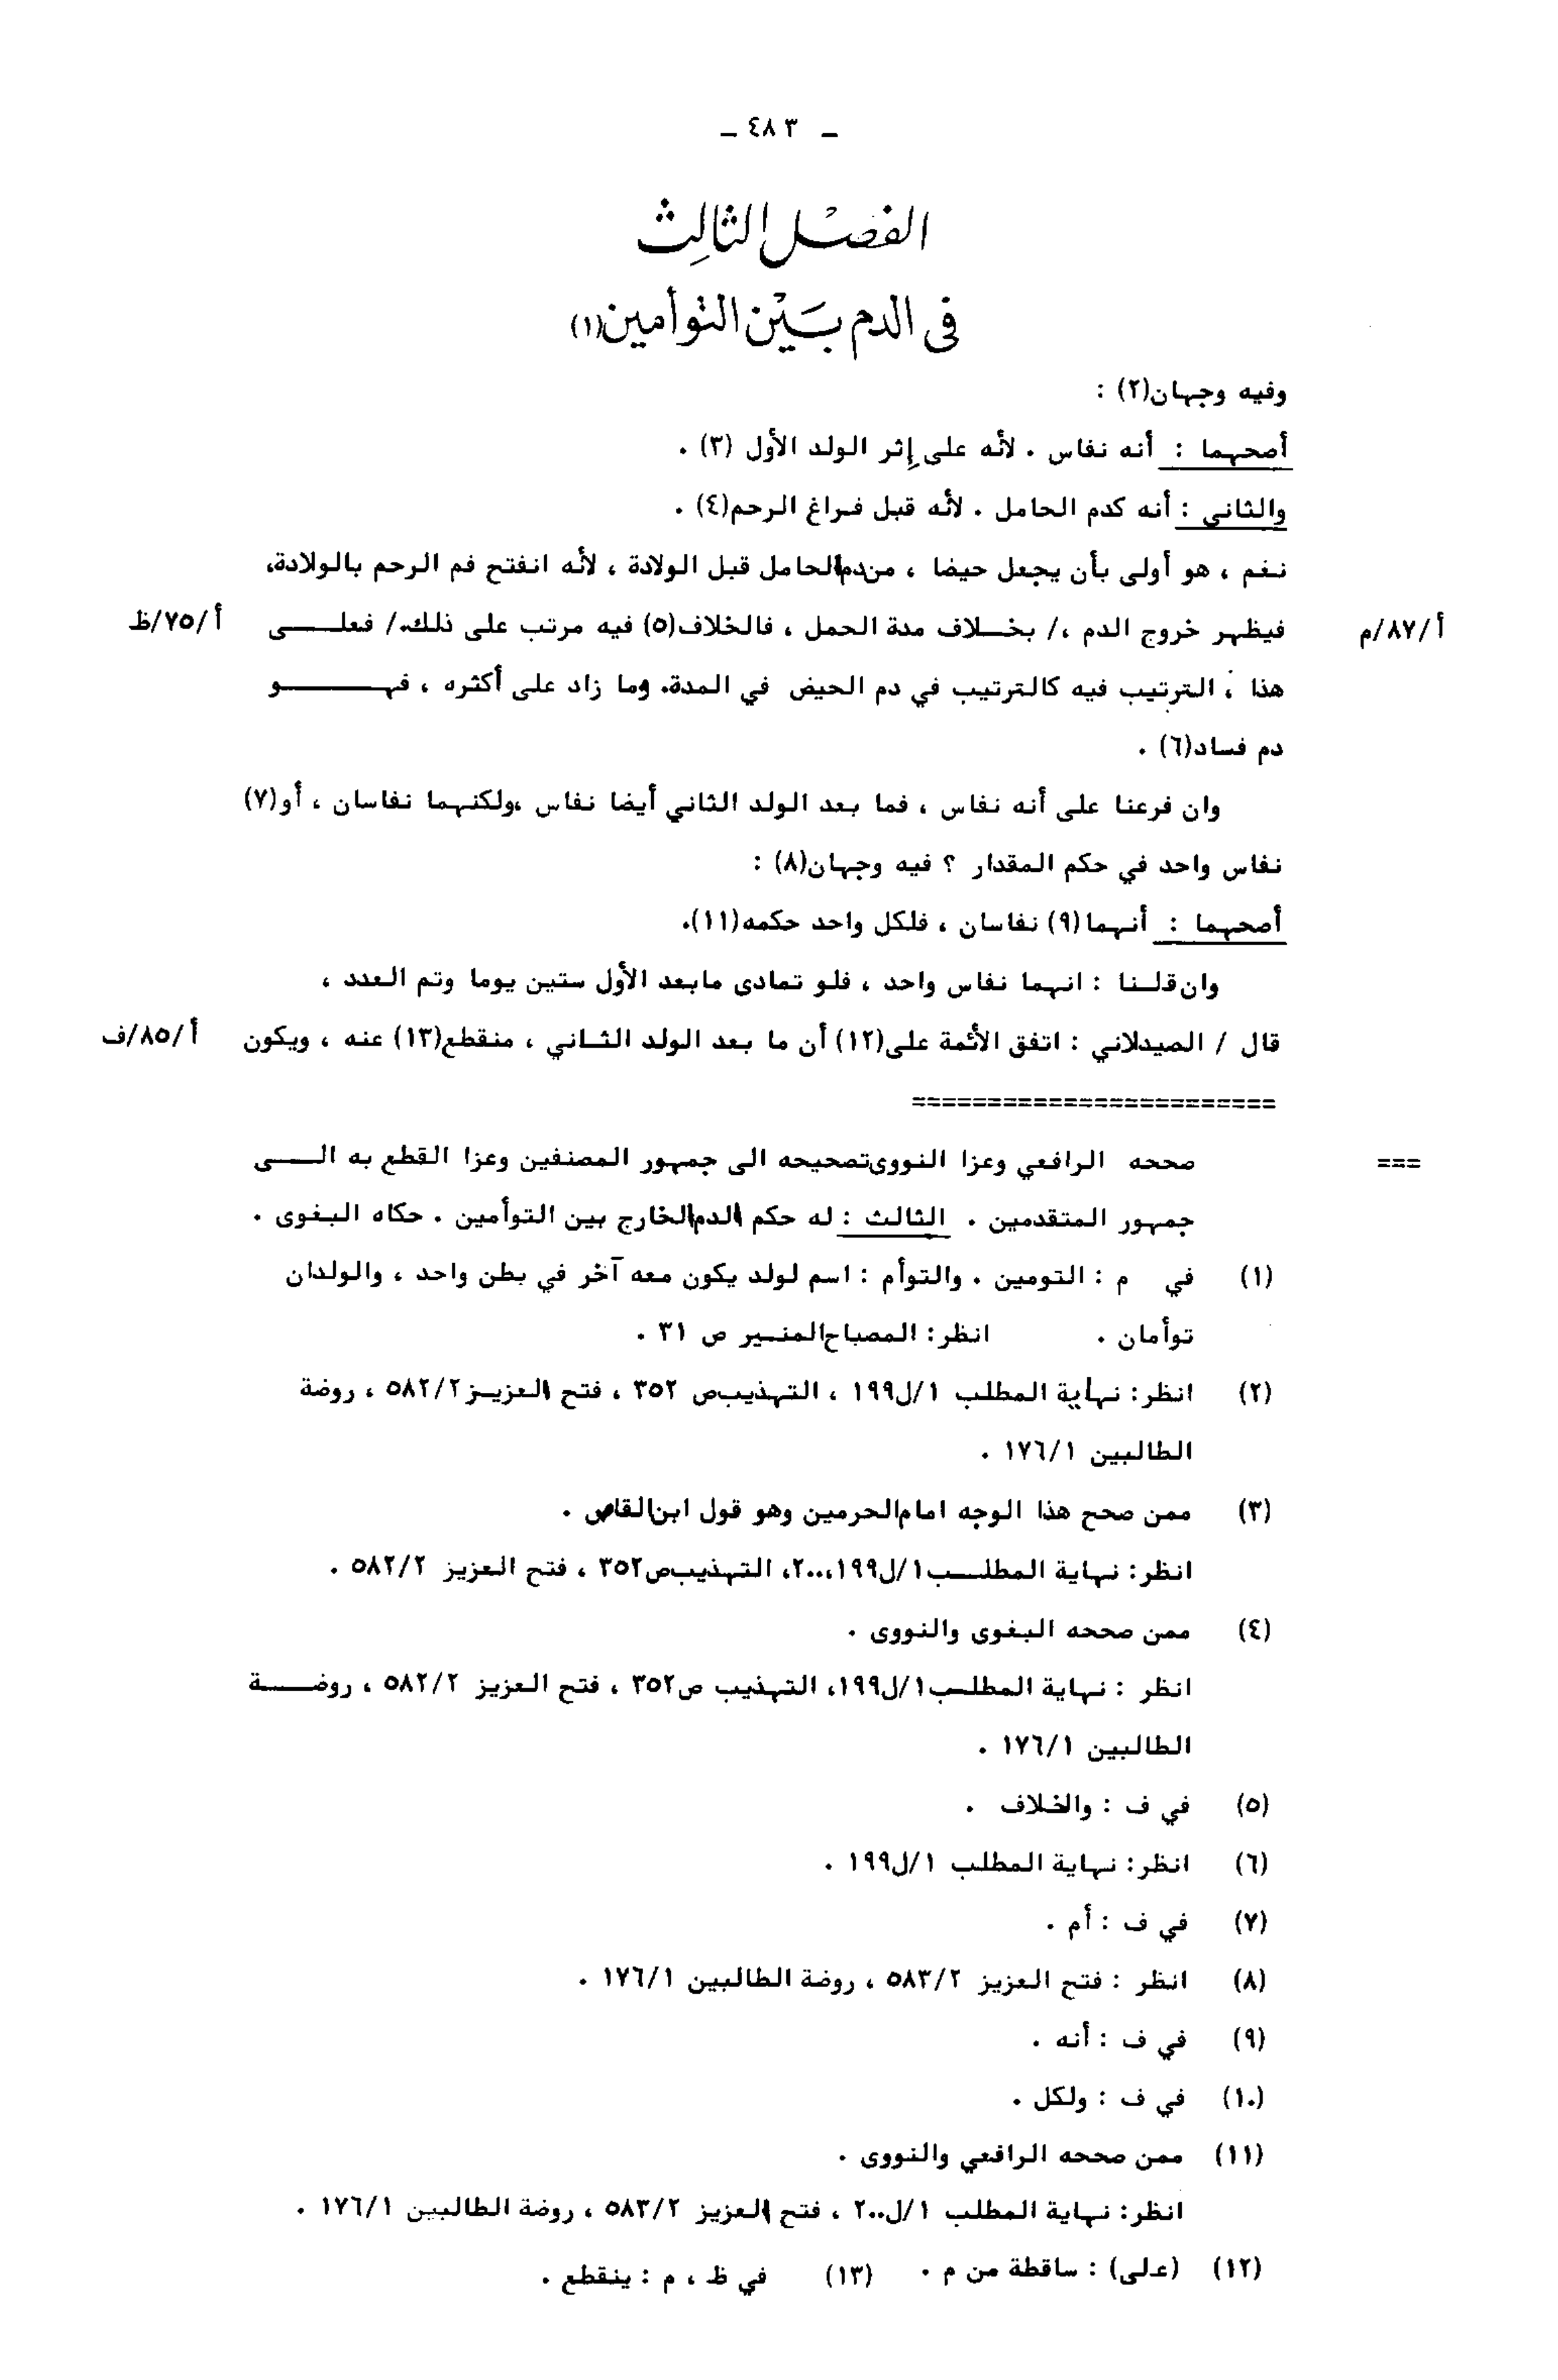 ـ ٤٨٣ ـ
الفصل الثالث
في الدم بين التوأمين(١)
وفيه وجهان(٢) :
أصحهما : أنه نفاس . لأنه على إثر الولد الأول (٣) .
والثاني : أنه كدم الحامل . لأنه قبل فراغ الرحم(٤) .
نعم ، هو أولى بأن يجعل حيضا ، من دم الحامل قبل الولادة ، لأنه انفتح فم الرحم بالولادة،
أ/٨٧/م فيظهر خروج الدم ،/ بخلاف مدة الحمل ، فالخلاف(٥) فيه مرتب على ذلك./ فعلى أ/٧٥/ظ
هذا ، الترتيب فيه كالترتيب في دم الحيض في المدة. وما زاد على أكثره ، فهو
دم فساد(٦) .
وان فرعنا على أنه نفاس ، فما بعد الولد الثاني أيضا نفاس ،ولكنهما نفاسان ، أو(٧)
نفاس واحد في حكم المقدار ؟ فيه وجهان(٨) :
أصحهما : أنهما(٩) نفاسان ، فلكل واحد حكمه(١١).
وان قلنا : انهما نفاس واحد ، فلو تمادى مابعد الأول ستين يوما وتم العدد ،
قال / الصيدلاني : اتفق الأئمة على(١٢) أن ما بعد الولد الثاني ، منقطع(١٣) عنه ، ويكون أ/٨٥/ف
========================
=== صححه الرافعي وعزا النووى تصحيحه الى جمهور المصنفين وعزا القطع به الى
جمهور المتقدمين . الثالث : له حكم الدم الخارج بين التوأمين . حكاه البغوى .
(١) في م : التومين . والتوأم : اسم لولد يكون معه آخر في بطن واحد ، والولدان
توأمان . انظر: المصباح المنير ص ٣١ .
(٢) انظر: نهاية المطلب ١/ل١٩٩ ، التهذيب ص ٣٥٢ ، فتح العزيز ٥٨٢/٢ ، روضة
الطالبين ١٧٦/١ .
(٣) ممن صحح هذا الوجه امام الحرمين وهو قول ابن القاص .
انظر: نهاية المطلب ١/ل١٩٩،٢٠٠، التهذيب ص٣٥٢ ، فتح العزيز ٥٨٢/٢ .
(٤) ممن صححه البغوى والنووى .
انظر : نهاية المطلب ١/ل١٩٩، التهذيب ص٣٥٢ ، فتح العزيز ٥٨٢/٢ ، روضة
الطالبين ١٧٦/١ .
(٥) في ف : والخلاف .
(٦) انظر: نهاية المطلب ١/ل١٩٩ .
(٧) في ف : أم .
(٨) انظر : فتح العزيز ٥٨٣/٢ ، روضة الطالبين ١٧٦/١ .
(٩) في ف : أنه .
(١٠) في ف : ولكل .
(١١) ممن صححه الرافعي والنووى .
انظر: نهاية المطلب ١/ل٢٠٠ ، فتح العزيز ٥٨٣/٢ ، روضة الطالبين ١٧٦/١ .
(١٢) (على) : ساقطة من م . (١٣) في ظ ، م : ينقطع .